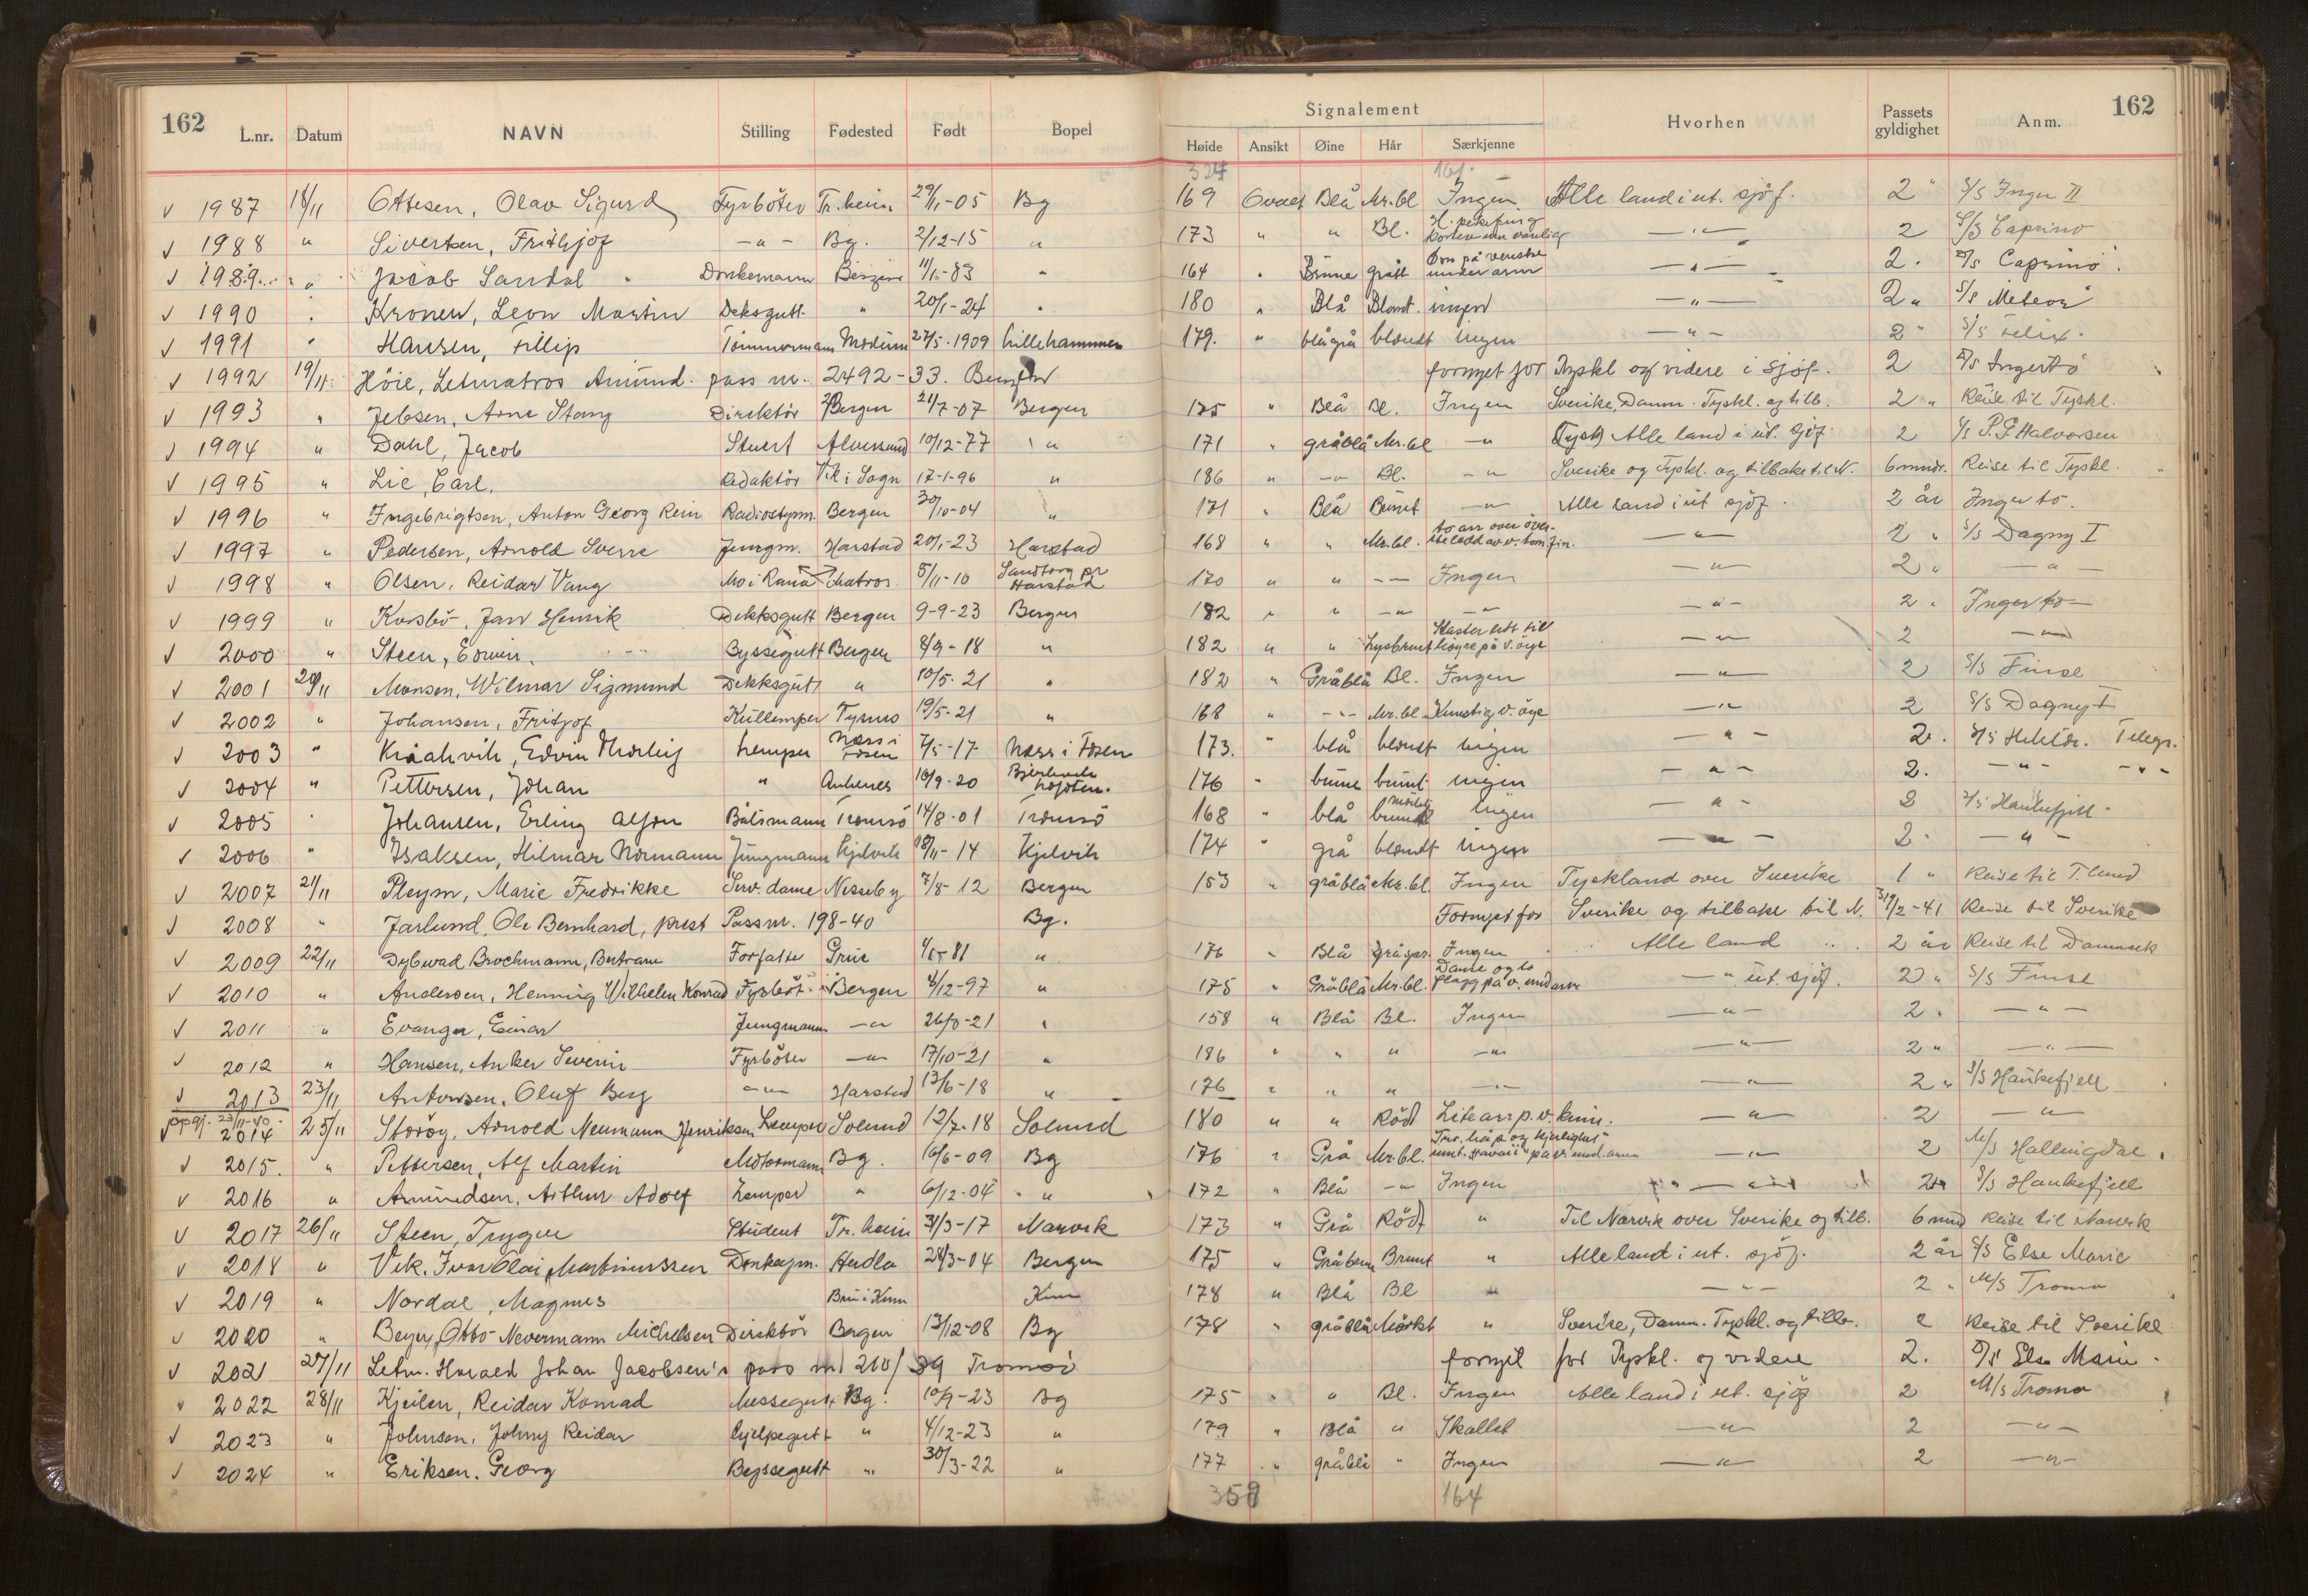 162 L.nr. Datum NAVN Stilling Fødested Født Bopel Signalement Hvorhen Passets gyldighet Anm. 162
Høide Ansikt Øine Hår Særkjenne
324 161.
v 1987 18/11 Ottesen, Olav Sigurd Fyrböter Tr.heim 29/1-05 Bg 169 Ovalt Blå Mr.bl Ingen Alle land i ut. sjöf. 2 " S/S Inger II
v 1988 " Sivertsen, Frithjof -"- Bg. 2/12-15 " 173 " " Bl. H. pekefing kortere enn vanlig -"- 2 S/S Caprino
v 1989 " Jacob Sandal Donkemann Bergen 11/1-83 " 164 " Brune grått under arm -"- 2 " S/S Caprino.
v 1990 " Kronen, Leon Martin Deksgutt " 20/1-24 " 180 " Blå Blondt. ingen -"- 2 " S/S Meteor
v 1991 " Hansen, Fillip Tömmermann Modum 27/5-1909 Lillehammer 179. " blågrå blondt ingen -"- 2 " S/S Felix.
v 1992 19/11 Höie, Letmatros Amund. pass nr. 2492-33. Bergen fornyet for Tyskl og videre i sjöf. 2 S/S Ingertö
v 1993 " Jebsen, Arne Stang Direktör Bergen 21/7-07 Bergen 175 " Blå Bl. Ingen Sverike, Danm. Tyskl. og tilb. 2 " Reise til Tyskl.
v 1994 " Dahl, Jacob Stuert Alversund 10/12-77 " 171 " gråblå Mr.bl -" (Tysk) Alle land i ut. sjöf. 2 S/S P.G Halvorsen
v 1995 " Lie, Carl. Redaktör Vik i Sogn 17-1-96 " 186 " -"- Bl. -" Sverike og Tyskl. og tilbake til N. 6 mndr. Reise til Tyskl.
v 1996 " Ingebrigtsen, Anton Georg Rein Radiostyrm. Bergen 30/10-04 " 171 " Blå Brunt -" Alle land i ut sjöf. 2 år Ingerto.
v 1997 " Pedersen, Arnold Sverre Jungm. Harstad 20/1-23 Harstad 168 " " Mr.bl. to arr over överste ledd av v. tom.fin. -"- 2 " S/S Dagny I
v 1998 " Olsen, Reidar Vang Mo i Rana Matros 5/11-10 Sandtorg pr Harstad 170 " " -"- Ingen -"- 2 " -"-
v 1999 " Korsbö, Jan Henrik Dekksgutt Bergen 9-9-23 Bergen 182 " " -"- -"- -"- 2 " Ingerto
v 2000 " Steen, Edwin. Byssegutt Bergen 8/9-18 " 182 " " Lysbrunt Kaster lett til höyre på v. öye -"- 2 -"-
v 2001 20/11 Monsen, Wilmar Sigmund Dekksgutt " 10/5-21 " 182 " Gråblå Bl. Ingen -"- 2 S/S Finse
v 2002 " Johansen, Fritjof Kullemper Tysnes 19/5-21 " 168 " -"- Mr.bl. Kunstig v. öye -"- 2 S/S Dagny I
v 2003 " Kråkvik, Edvin Thorleif Lemper Næss i Fosen 7/5-17 Næss i Fosen 173. " blå blondt ingen -"- 2. Telegr.
v 2004 " Pettersen, Johan " Ankenes 16/9-20 176 " brune brunt ingen -"- 2. -"- -"-
v 2005 " Johansen, Erling Båtsmann Tromsö 14/8-01 Tromsö 168 " blå mörk brunt ingen -"- 2 S/S Haukefjell
v 2006 " Isaksen, Hilmar Normann Jungmann Kjelvik 18/11-14 Kjelvik 174 " grå blondt ingen -"- 2 -"-
v 2007 21/11 Pleym, Marie Fredrikke Serv. dame Nesseby 7/8-12 Bergen 153 " gråblå Mr.bl. Ingen Tyskland over Sverike 1 " Reise til T.land
v 2008 " Jarlund, Ole Bernhard, prest Passnr. 198-40 Bg. Fornyet for Sverike og tilbake til N. /2-41 Reise til Sverike
v 2009 22/11 Dybwad Brochmann, Bertram Forfatter Grue 81 " 176 " Blå gråspr. Ingen Alle land 2 år Reise til Danmark
v 2010 " Andersen, Henning Wilhelm Konrad Fyrböt. Bergen 4/12-97 " 175 " Gråblå Mr.bl. Dame og to flagg på v. und.arm -" ut. sjöf. 2 " S/S Finse
v 2011 " Evanger, Einar Jungmann -"- -21 " 158 " Blå Bl. Ingen -"- 2 " -"-
v 2012 " Hansen, Anker Severin Fyrböter -"- 17/10-21 " 186 " " " -"- -"- 2 " -"-
v 2013 23/11 Antonsen, Oluf Berg -"- Harstad 13/6-18 " 176 " " " -"- -"- 2 " S/S Haukefjell
oppgj. 23/11-40.
v 2014 25/11 Storöy, Arnold Neumann Henriksen Lemper Solund 12/7-18 Solund 180 " " Röd Lite arr p.v. kinn. -"- 2 -"-
v 2015. " Pettersen, Alf Martin Motormann Bg. 16/6-09 Bg 176 " Grå Mr.bl. "Tro, håp og kjærlighet" samt "Hawaii" på v. und.arm -"- 2 M/S Hallingdal
v 2016 " Amundsen, Arthur Adolf Lemper " 6/12-04 " 172 " Blå -"- Ingen -"- 2 " S/S Haukefjell
v 2017 26/11 Steen, Trygve Student Tr. heim 31/3-17 Narvik 173 " Grå Rödt " Til Narvik over Sverike og tilb. 6 mnd Reise til Narvik
v 2018 " Vik, Ivar Olai Martinussen Donkeym. Herdla 28/3-04 Bergen 175 " Gråbrun Brunt " Alle land i ut. sjöf. 2 år S/S Else Marie
v 2019 " Nordal, Magnus Bru i Kinn Kinn 178 " Blå Bl " -"- 2 " M/S Tromo
v 2020 " Beyer, Otto Nevermann Michelsen Direktör Bergen 13/12-08 Bg 178 " gråblå Mörkt " Sverike, Danm. Tyskl. og tilb. 2 Reise til Sverike
v 2021 27/11 Letm. Harald Johan Jacobsen's pass nr 210/39 Tromsö fornyet for Tyskl. og videre 2. S/S Else Marie.
v 2022 28/11 Kjeilen, Reidar Konrad Messegutt Bg. 10/9-23 Bg 175 " " Bl. Ingen Alle land i ut. sjöf 2 M/S Tromo
v 2023 " Johnson, Johny Reidar hjelpegutt " 4/12-23 " 179 " Blå " Skallet -"- 2 -"-
v 2024 " Eriksen, Georg Byssegutt " 30/3-22 " 177 " gråblå " Ingen -"- 2 -"-
359 164